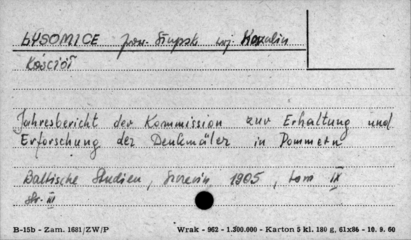 ŁYSOMICE pow. Słupsk woj. Koszalin
KOŚCIÓŁ
Jahresbericht der Kommission zur Erhaltung und
Erforschung der Denkmäler in Pommern
Baltische Studien, Szczecin 1905, tom IX
str. III
B-15b - Zam. 1681/ZW/P Wrak - 962 - 1.500.000 - Karton 5 kl. 180 g, 61x86 - 10. 9. 60